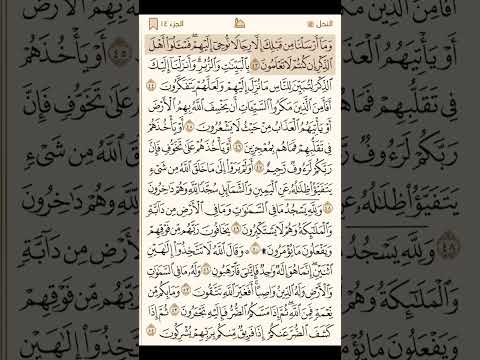 النحل
الجزء ١٤
وَمَآ أَرْسَلْنَا مِن قَبْلِكَ إِلَّا رِجَالًا نُّوحِىٓ إِلَيْهِمْ فَسْـَٔلُوٓا۟ أَهْلَ
ٱلذِّكْرِ إِن كُنتُمْ لَا تَعْلَمُونَ ٤٣ بِٱلْبَيِّنَـٰتِ وَٱلزُّبُرِ وَأَنزَلْنَآ إِلَيْكَ
ٱلذِّكْرَ لِتُبَيِّنَ لِلنَّاسِ مَا نُزِّلَ إِلَيْهِمْ وَلَعَلَّهُمْ يَتَفَكَّرُونَ ٤٤
أَفَأَمِنَ ٱلَّذِينَ مَكَرُوا۟ ٱلسَّيِّـَٔاتِ أَن يَخْسِفَ ٱللَّهُ بِهِمُ ٱلْأَرْضَ
أَوْ يَأْتِيَهُمُ ٱلْعَذَابُ مِنْ حَيْثُ لَا يَشْعُرُونَ ٤٥ أَوْ يَأْخُذَهُمْ
فِى تَقَلُّبِهِمْ فَمَا هُم بِمُعْجِزِينَ ٤٦ أَوْ يَأْخُذَهُمْ عَلَىٰ تَخَوُّفٍ فَإِنَّ
رَبَّكُمْ لَرَءُوفٌ رَّحِيمٌ ٤٧ أَوَلَمْ يَرَوْا۟ إِلَىٰ مَا خَلَقَ ٱللَّهُ مِن شَىْءٍ
يَتَفَيَّؤُا۟ ظِلَـٰلُهُۥ عَنِ ٱلْيَمِينِ وَٱلشَّمَآئِلِ سُجَّدًا لِّلَّهِ وَهُمْ دَٰخِرُونَ
٤٨ وَلِلَّهِ يَسْجُدُ مَا فِى ٱلسَّمَـٰوَٰتِ وَمَا فِى ٱلْأَرْضِ مِن دَآبَّةٍ
وَٱلْمَلَـٰٓئِكَةُ وَهُمْ لَا يَسْتَكْبِرُونَ ٤٩ يَخَافُونَ رَبَّهُم مِّن فَوْقِهِمْ
وَيَفْعَلُونَ مَا يُؤْمَرُونَ ۩ ٥٠ ۞ وَقَالَ ٱللَّهُ لَا تَتَّخِذُوٓا۟ إِلَـٰهَيْنِ
ٱثْنَيْنِ ۖ إِنَّمَا هُوَ إِلَـٰهٌ وَٰحِدٌ ۖ فَإِيَّـٰىَ فَٱرْهَبُونِ ٥١ وَلَهُۥ مَا فِى ٱلسَّمَـٰوَٰتِ
وَٱلْأَرْضِ وَلَهُ ٱلدِّينُ وَاصِبًا ۚ أَفَغَيْرَ ٱللَّهِ تَتَّقُونَ ٥٢ وَمَا بِكُم مِّن
نِّعْمَةٍ فَمِنَ ٱللَّهِ ۖ ثُمَّ إِذَا مَسَّكُمُ ٱلضُّرُّ فَإِلَيْهِ تَجْـَٔرُونَ ٥٣ ثُمَّ إِذَا
كَشَفَ ٱلضُّرَّ عَنكُمْ إِذَا فَرِيقٌ مِّنكُم بِرَبِّهِمْ يُشْرِكُونَ ٥٤